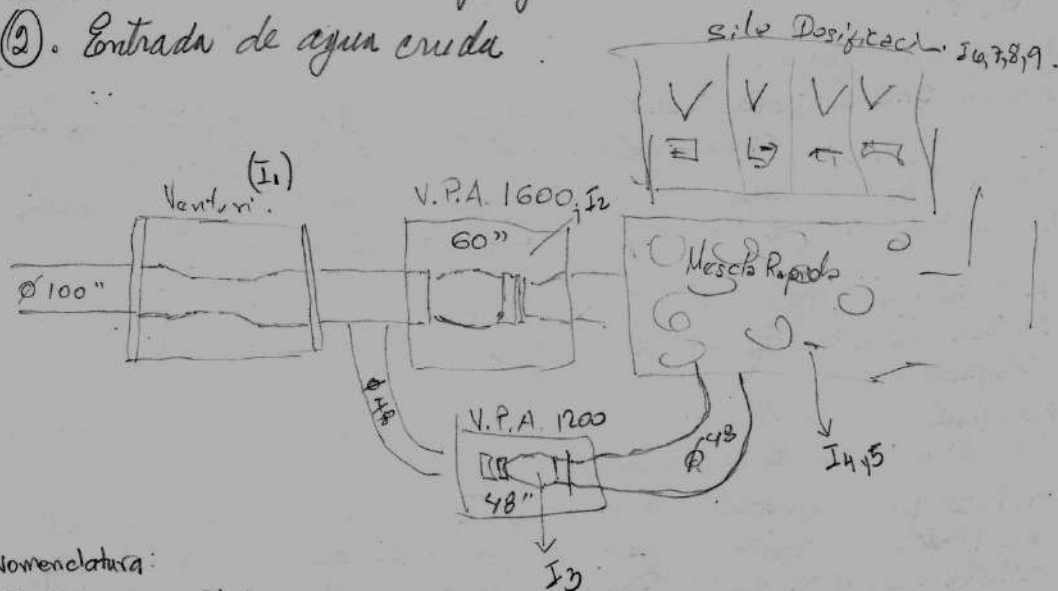 ②. Entrada de agua cruda
silo Dosificaci. I6,7,8,9.
(I1)
Venturi.
V.P.A. 1600 I2
60"
Ø 100"
Mescla Rapida
Ø 48
V.P.A. 1200
48"
Ø 48
I4y5
I3
Nomenclatura: